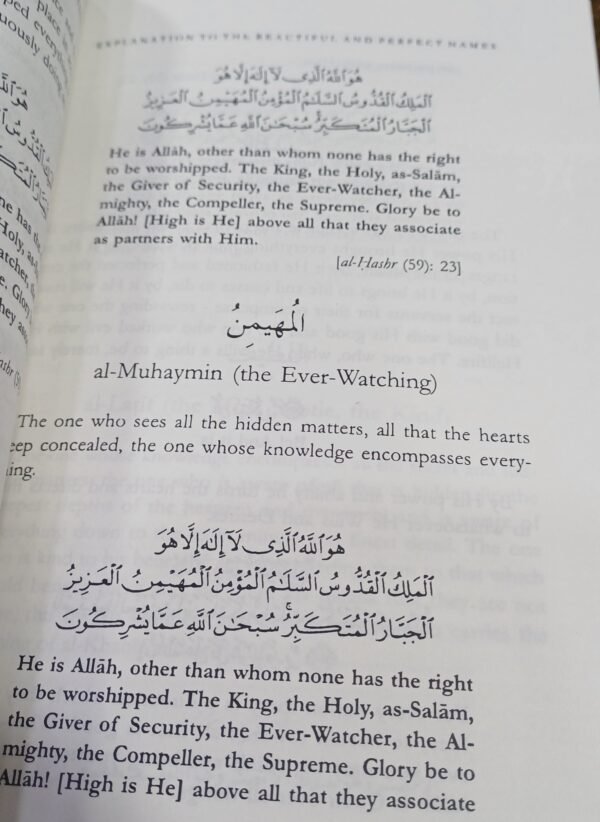 place is
ped everything
uously doing
EXPLANATION TO THE BEAUTIFUL AND PERFECT NAMES
هُوَ اللَّهُ الَّذِى لَآ إِلَٰهَ إِلَّا هُوَ
الْمَلِكُ الْقُدُّوسُ السَّلَٰمُ الْمُؤْمِنُ الْمُهَيْمِنُ الْعَزِيزُ
الْجَبَّارُ الْمُتَكَبِّرُ ۚ سُبْحَٰنَ اللَّهِ عَمَّا يُشْرِكُونَ
He is Allāh, other than whom none has the right
to be worshipped. The King, the Holy, as-Salām,
the Giver of Security, the Ever-Watcher, the Al-
mighty, the Compeller, the Supreme. Glory be to
Allāh! [High is He] above all that they associate
as partners with Him.
[al-Ḥashr (59): 23]
الْمُهَيْمِنُ
al-Muhaymin (the Ever-Watching)
The one who sees all the hidden matters, all that the hearts
eep concealed, the one whose knowledge encompasses every-
ing.
هُوَ اللَّهُ الَّذِى لَآ إِلَٰهَ إِلَّا هُوَ
الْمَلِكُ الْقُدُّوسُ السَّلَٰمُ الْمُؤْمِنُ الْمُهَيْمِنُ الْعَزِيزُ
الْجَبَّارُ الْمُتَكَبِّرُ ۚ سُبْحَٰنَ اللَّهِ عَمَّا يُشْرِكُونَ
He is Allāh, other than whom none has the right
to be worshipped. The King, the Holy, as-Salām,
the Giver of Security, the Ever-Watcher, the Al-
mighty, the Compeller, the Supreme. Glory be to
Allāh! [High is He] above all that they associate